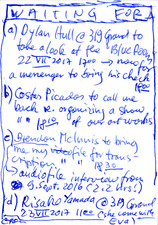 WAITING FOR
a) Dylan Hull @ 319 Grand to
take a look at the Blue
22 VII 2017 1700 → now for
a messenger to bring his check
1800
b) Costas Picadas to call me
back re. organizing a show,
" 1800 of our art works
c) Brendan McInnis to bring
me my file for trans-
cription " " 1830
↳ audiofile interview from
9. Sept. 2016 (2.2 hrs!)
d) Risako Yamada @ 319 Grand
23 VII 2017 1100 (she came with
Eva)